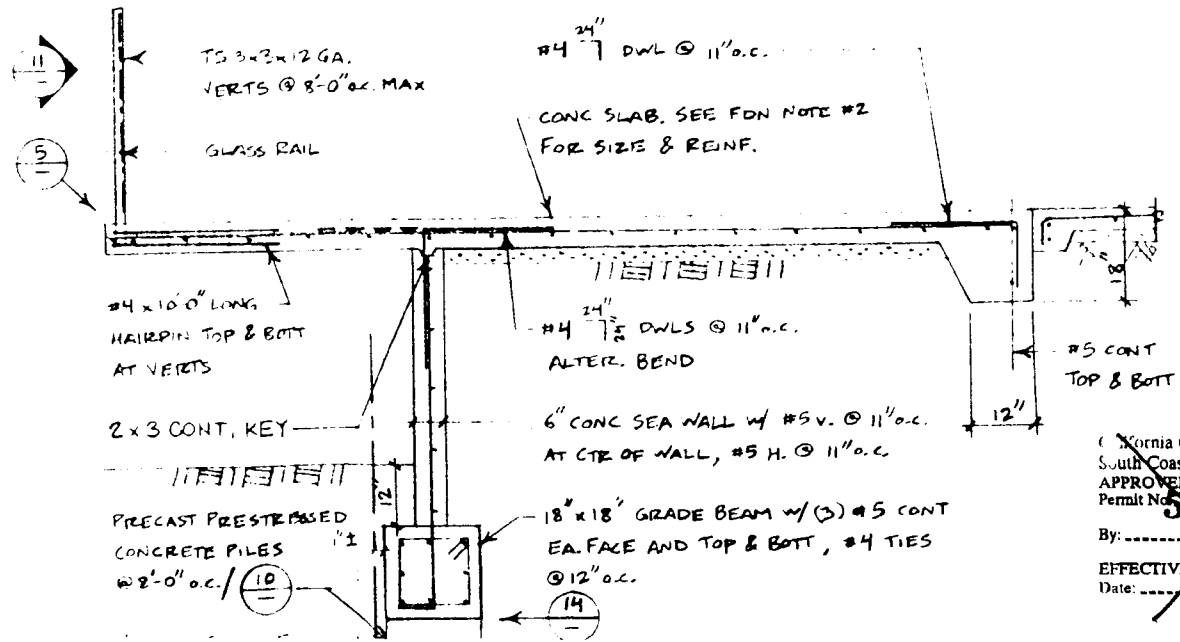 11
TS 3x3x12 GA.
VERTS @ 8'-0" o.c. MAX
5
GLASS RAIL
#4 24" DWL @ 11" o.c.
CONC SLAB. SEE FDN NOTE #2
FOR SIZE & REINF.
18"
#4 x 10'0" LONG
HAIRPIN TOP & BOTT
AT VERTS
#4 24" DWLS @ 11" o.c.
ALTER. BEND
#5 CONT
TOP & BOTT
12"
2 x 3 CONT, KEY
6" CONC SEA WALL W/ #5 V. @ 11" o.c.
AT CTR OF WALL, #5 H. @ 11" o.c.
12"
PRECAST PRESTRESSED
CONCRETE PILES
@ 8'-0" o.c. / 10
1" ±
18" x 18" GRADE BEAM W/ (3) #5 CONT
EA. FACE AND TOP & BOTT, #4 TIES
@ 12" o.c.
14
South Coas
APPROVE
Permit No
5
By:
EFFECTIV
Date: